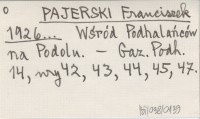 PAJERSKI Franciszek
1926... Wśród Podhalańców
na Podolu. — Gaz. Podh.
14, nry 42, 43, 44, 45, 47.